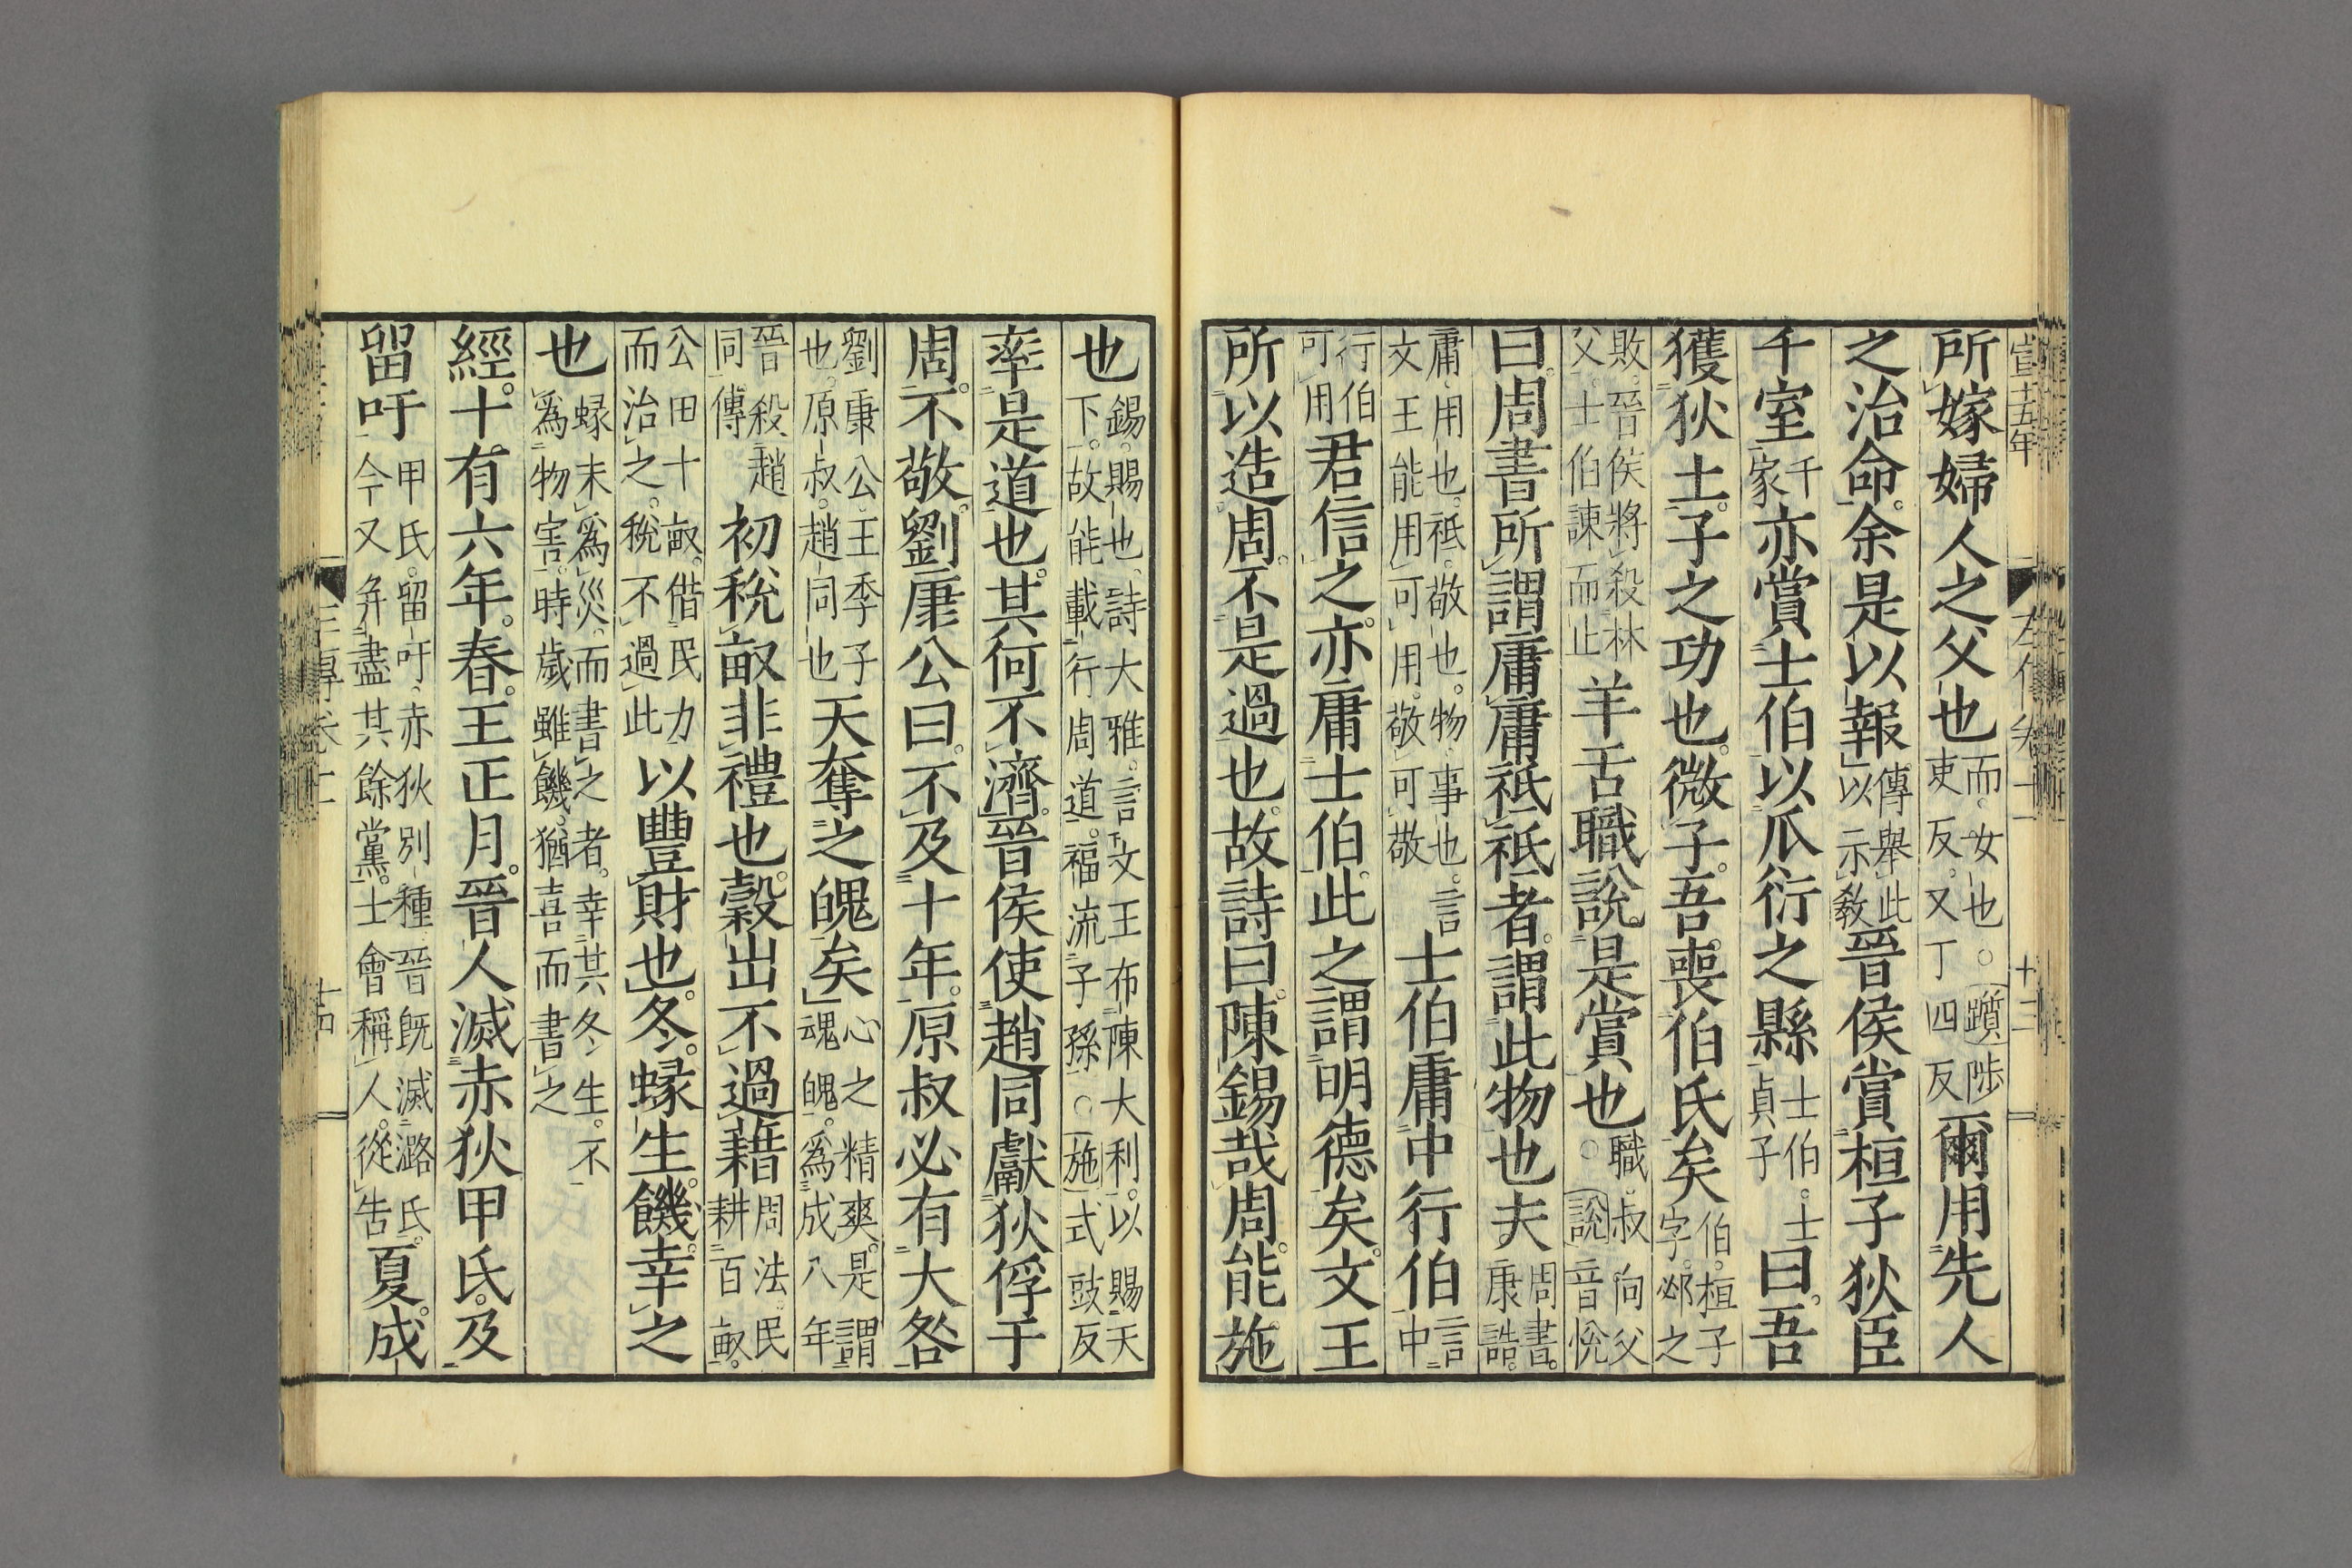 宣十五年
左傳卷十一
十三
所嫁婦人之父也而女也○躓陟吏反又丁四反爾用先人
之治命余是以報傳舉此以示教晉侯賞桓子狄臣
千室千家亦賞士伯以瓜衍之縣士伯士貞子曰吾
獲狄土子之功也微子吾喪伯氏矣伯桓子字邲之
敗晉侯將殺林父士伯諫而止羊舌職說是賞也職叔向父○說音悅
曰周書所謂庸庸祗祗者謂此物也夫周書康誥
庸用也祗敬也物事也言文王能用可用敬可敬士伯庸中行伯言中
行伯可用君信之亦庸士伯此之謂明德矣文王
所以造周不是過也故詩曰陳錫哉周能施
也錫賜也詩大雅言文王布陳大利以賜天下故能載行周道福流子孫○施式豉反
率是道也其何不濟晉侯使趙同獻狄俘于
周不敬劉康公曰不及十年原叔必有大咎
劉康公王季子也原叔趙同也天奪之魄矣心之精爽是謂魂魄爲成八年
晉殺趙同傳初稅畝非禮也穀出不過藉周法民耕百畝
公田十畝借民力而治之稅不過此以豐財也冬蝝生饑幸之
也蝝未爲災而書之者幸其冬生不爲物害時歲雖饑猶喜而書之
經十有六年春王正月晉人滅赤狄甲氏及
留吁甲氏留吁赤狄別種晉既滅潞氏今又并盡其餘黨士會稱人從告夏成
十四